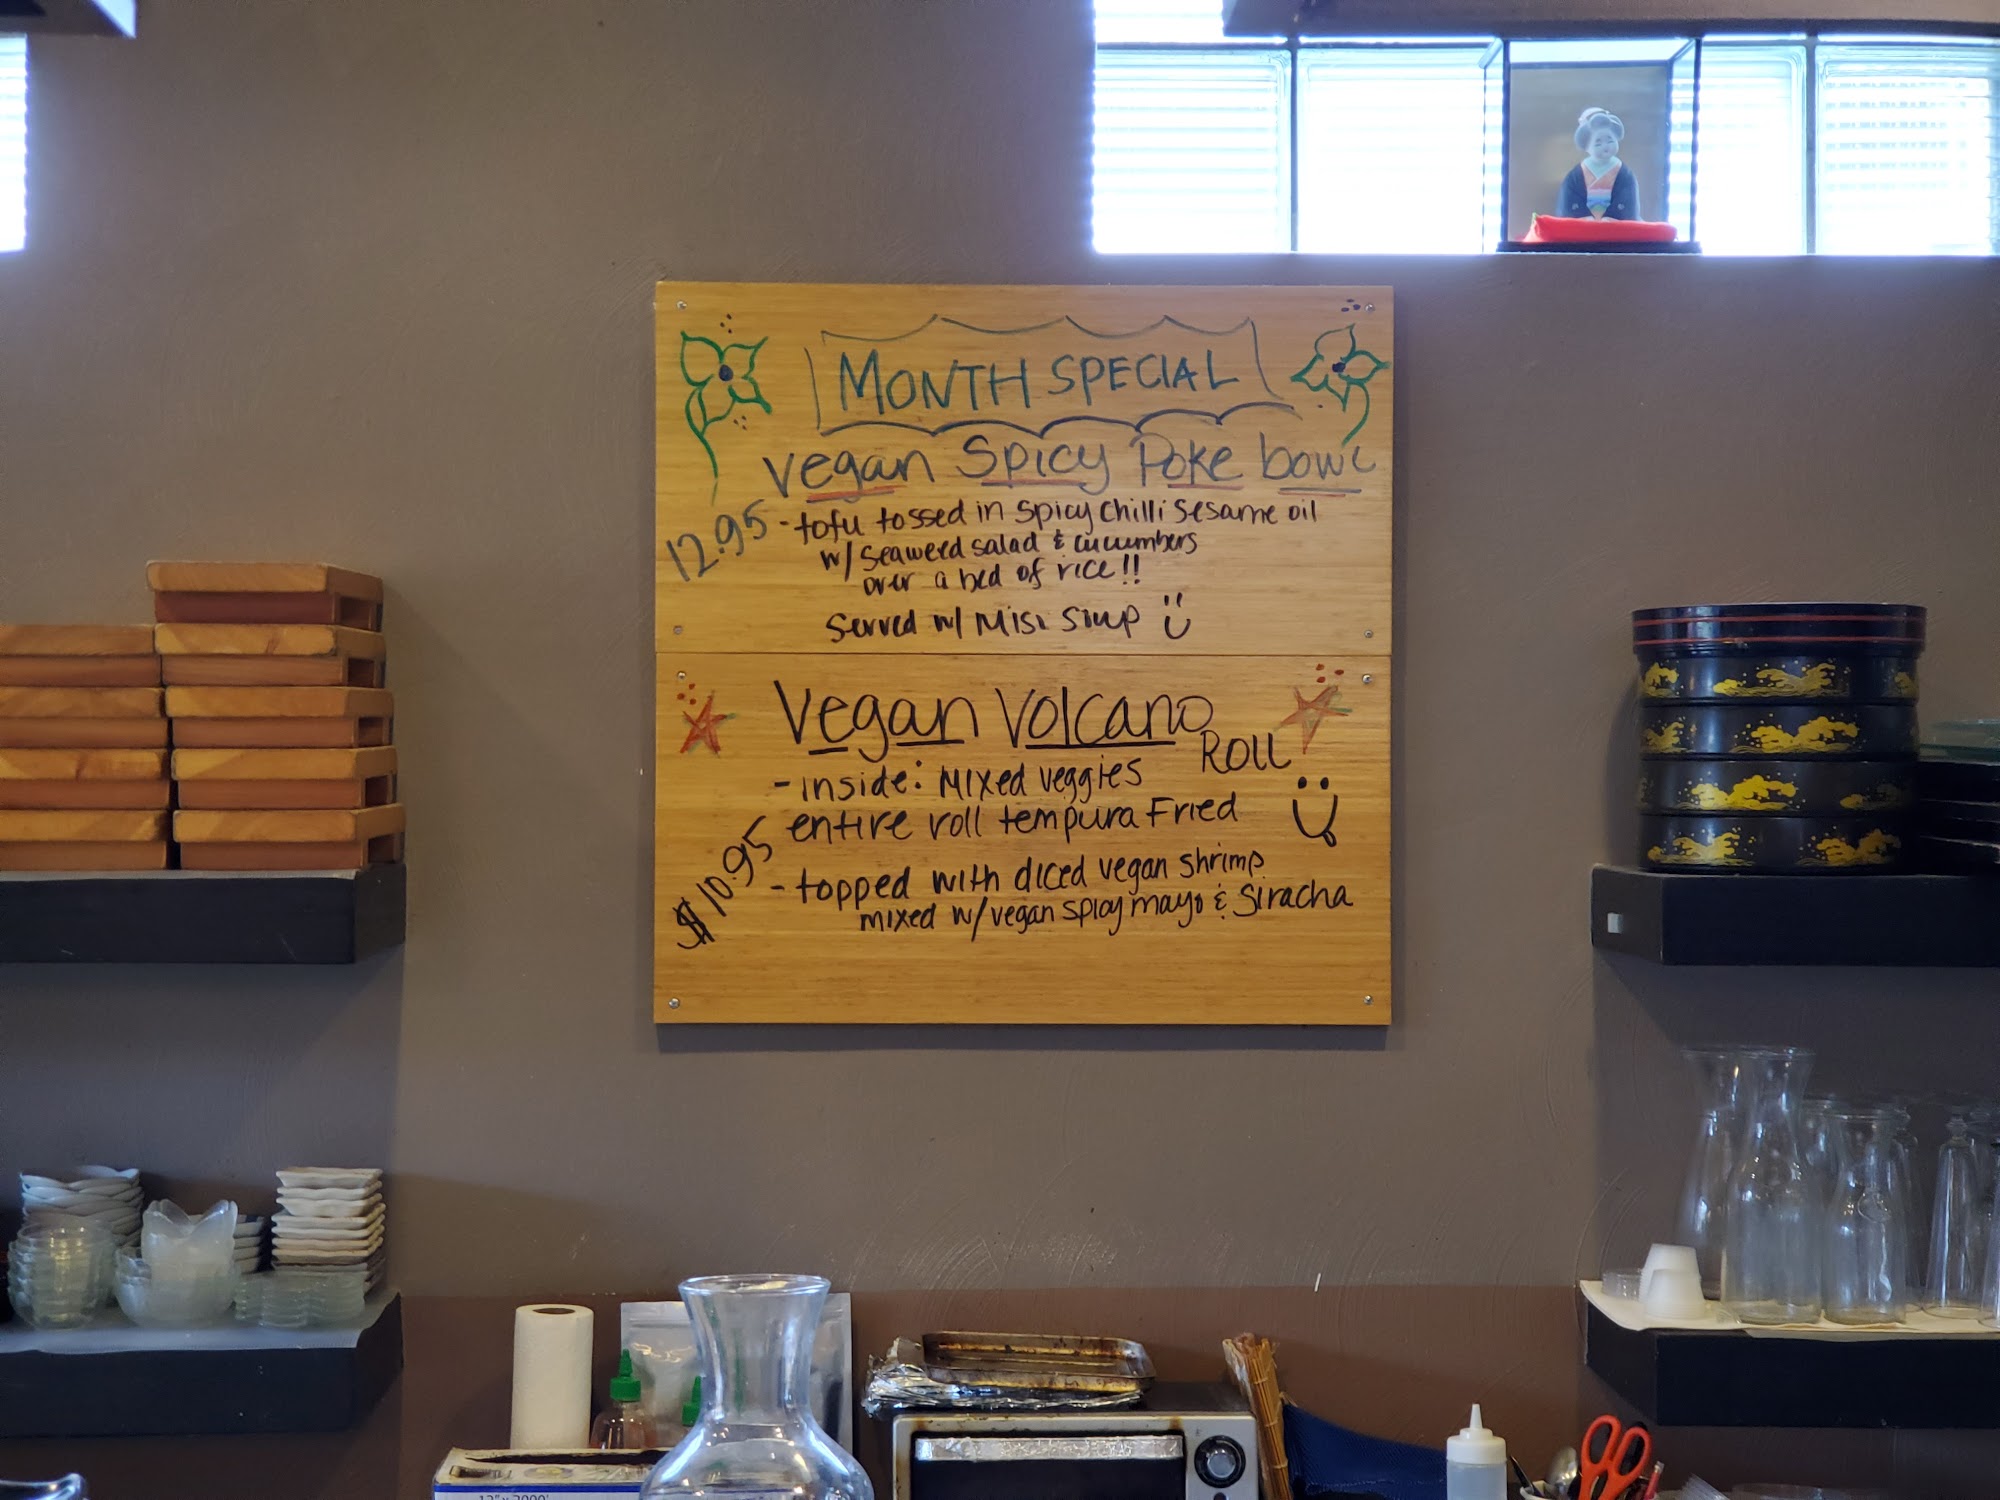 MONTH SPECIAL
Vegan Spicy Poke bowl
12.95
- tofu tossed in spicy chilli sesame oil
w/ seaweed salad & cucumbers
over a bed of rice!!
Served w/ Miso Soup
Vegan Volcano
ROLL
- inside: Mixed veggies
entire roll tempura Fried
$10.95
- topped with diced vegan shrimp
mixed w/ vegan spicy mayo & Siracha